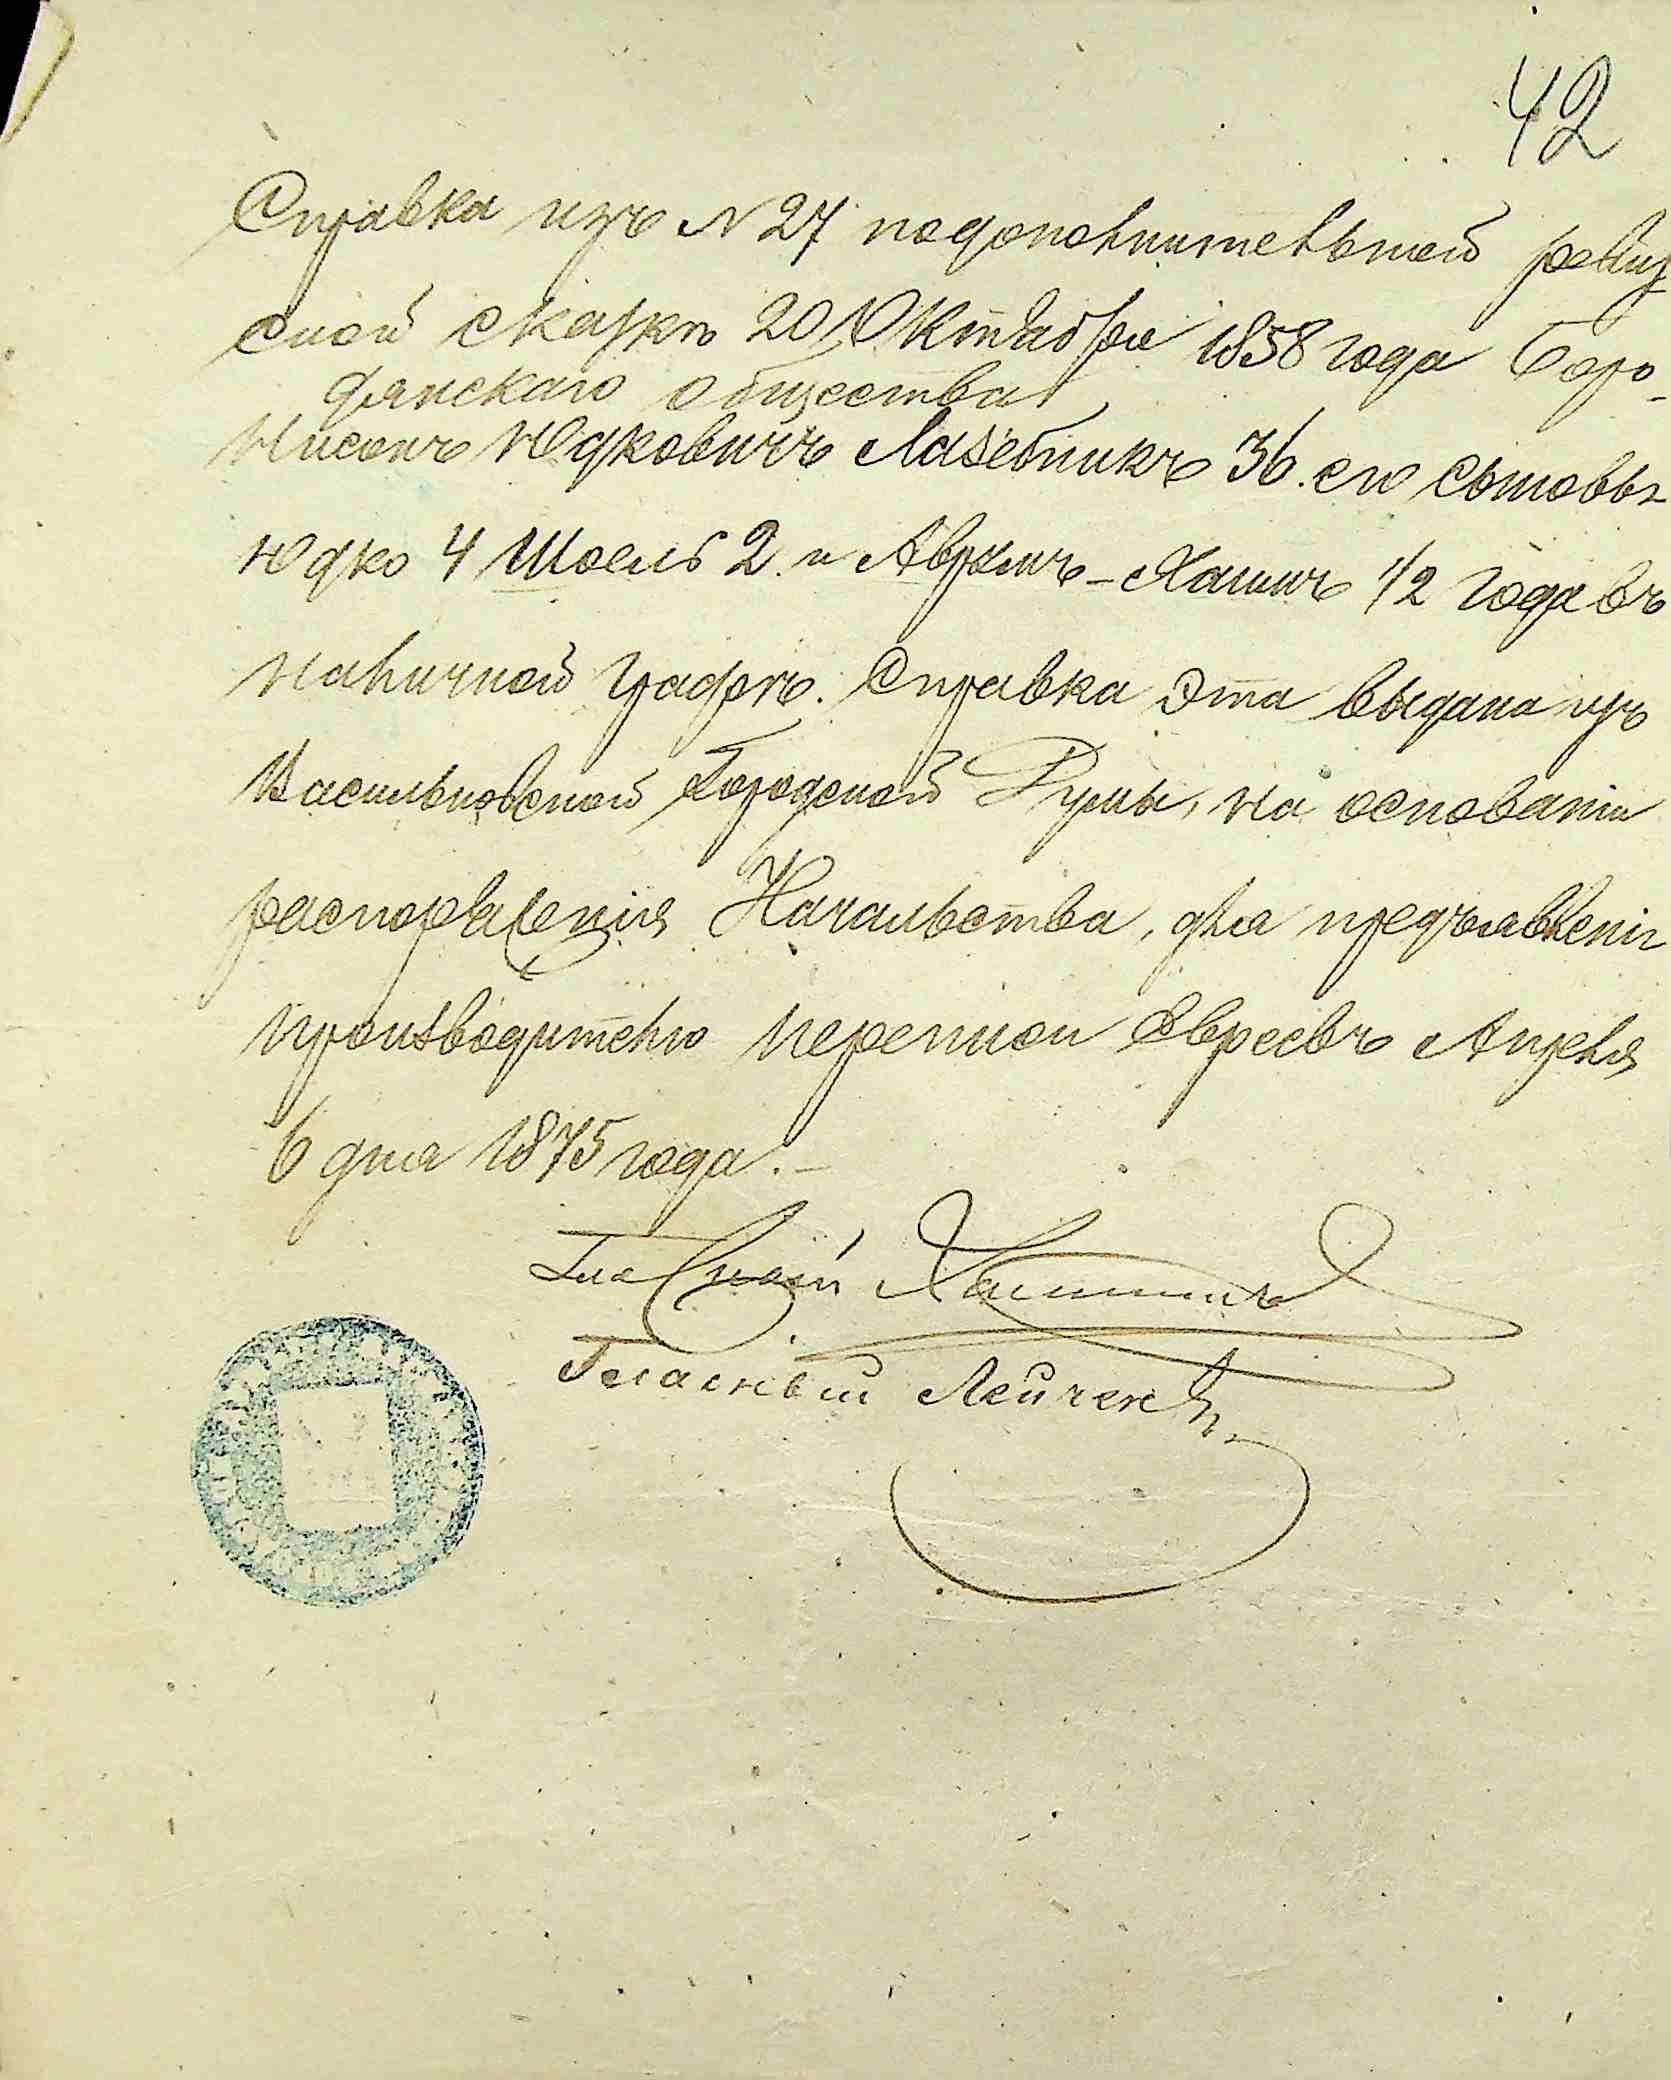 42
Справка изъ № 27 подополнительной ревиз
сной сказки 20 Октября 1858 года Боро-
дянскаго общества
Нисонъ Юдковичъ Лазебникъ 36. его сыновья
Юдко 4 Шоель 2. и Аврумъ-Хаимъ 1/2 года въ
наличной графѣ. Справка эта выдана изъ
Васильковской Городской Думы, на основаніи
распоряженія Начальства, для предъявленія
производителю переписи Евреевъ Апреля
6 дня 1875 года.-
Гласный
Гласный